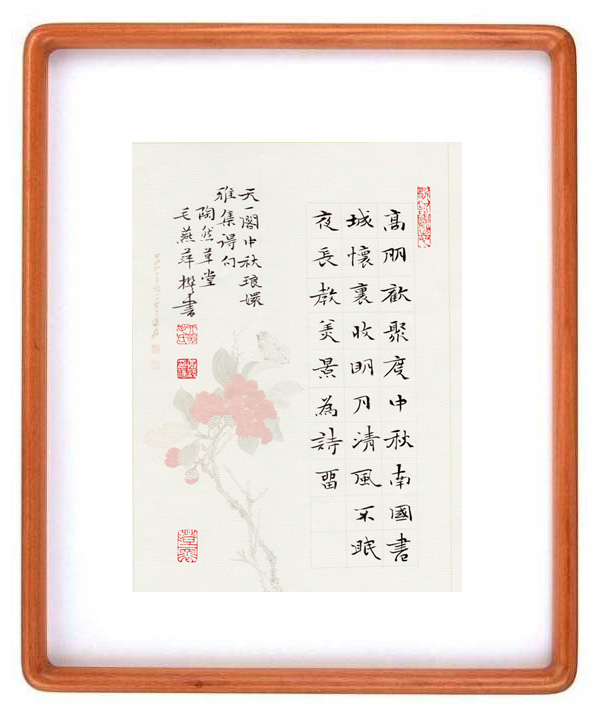 高朋歡聚度中秋南國書
城懷裏收明月清風不眠
夜長教美景為詩留
天一閣中秋琅嬛
雅集得句
陶然草堂
毛燕萍撰書